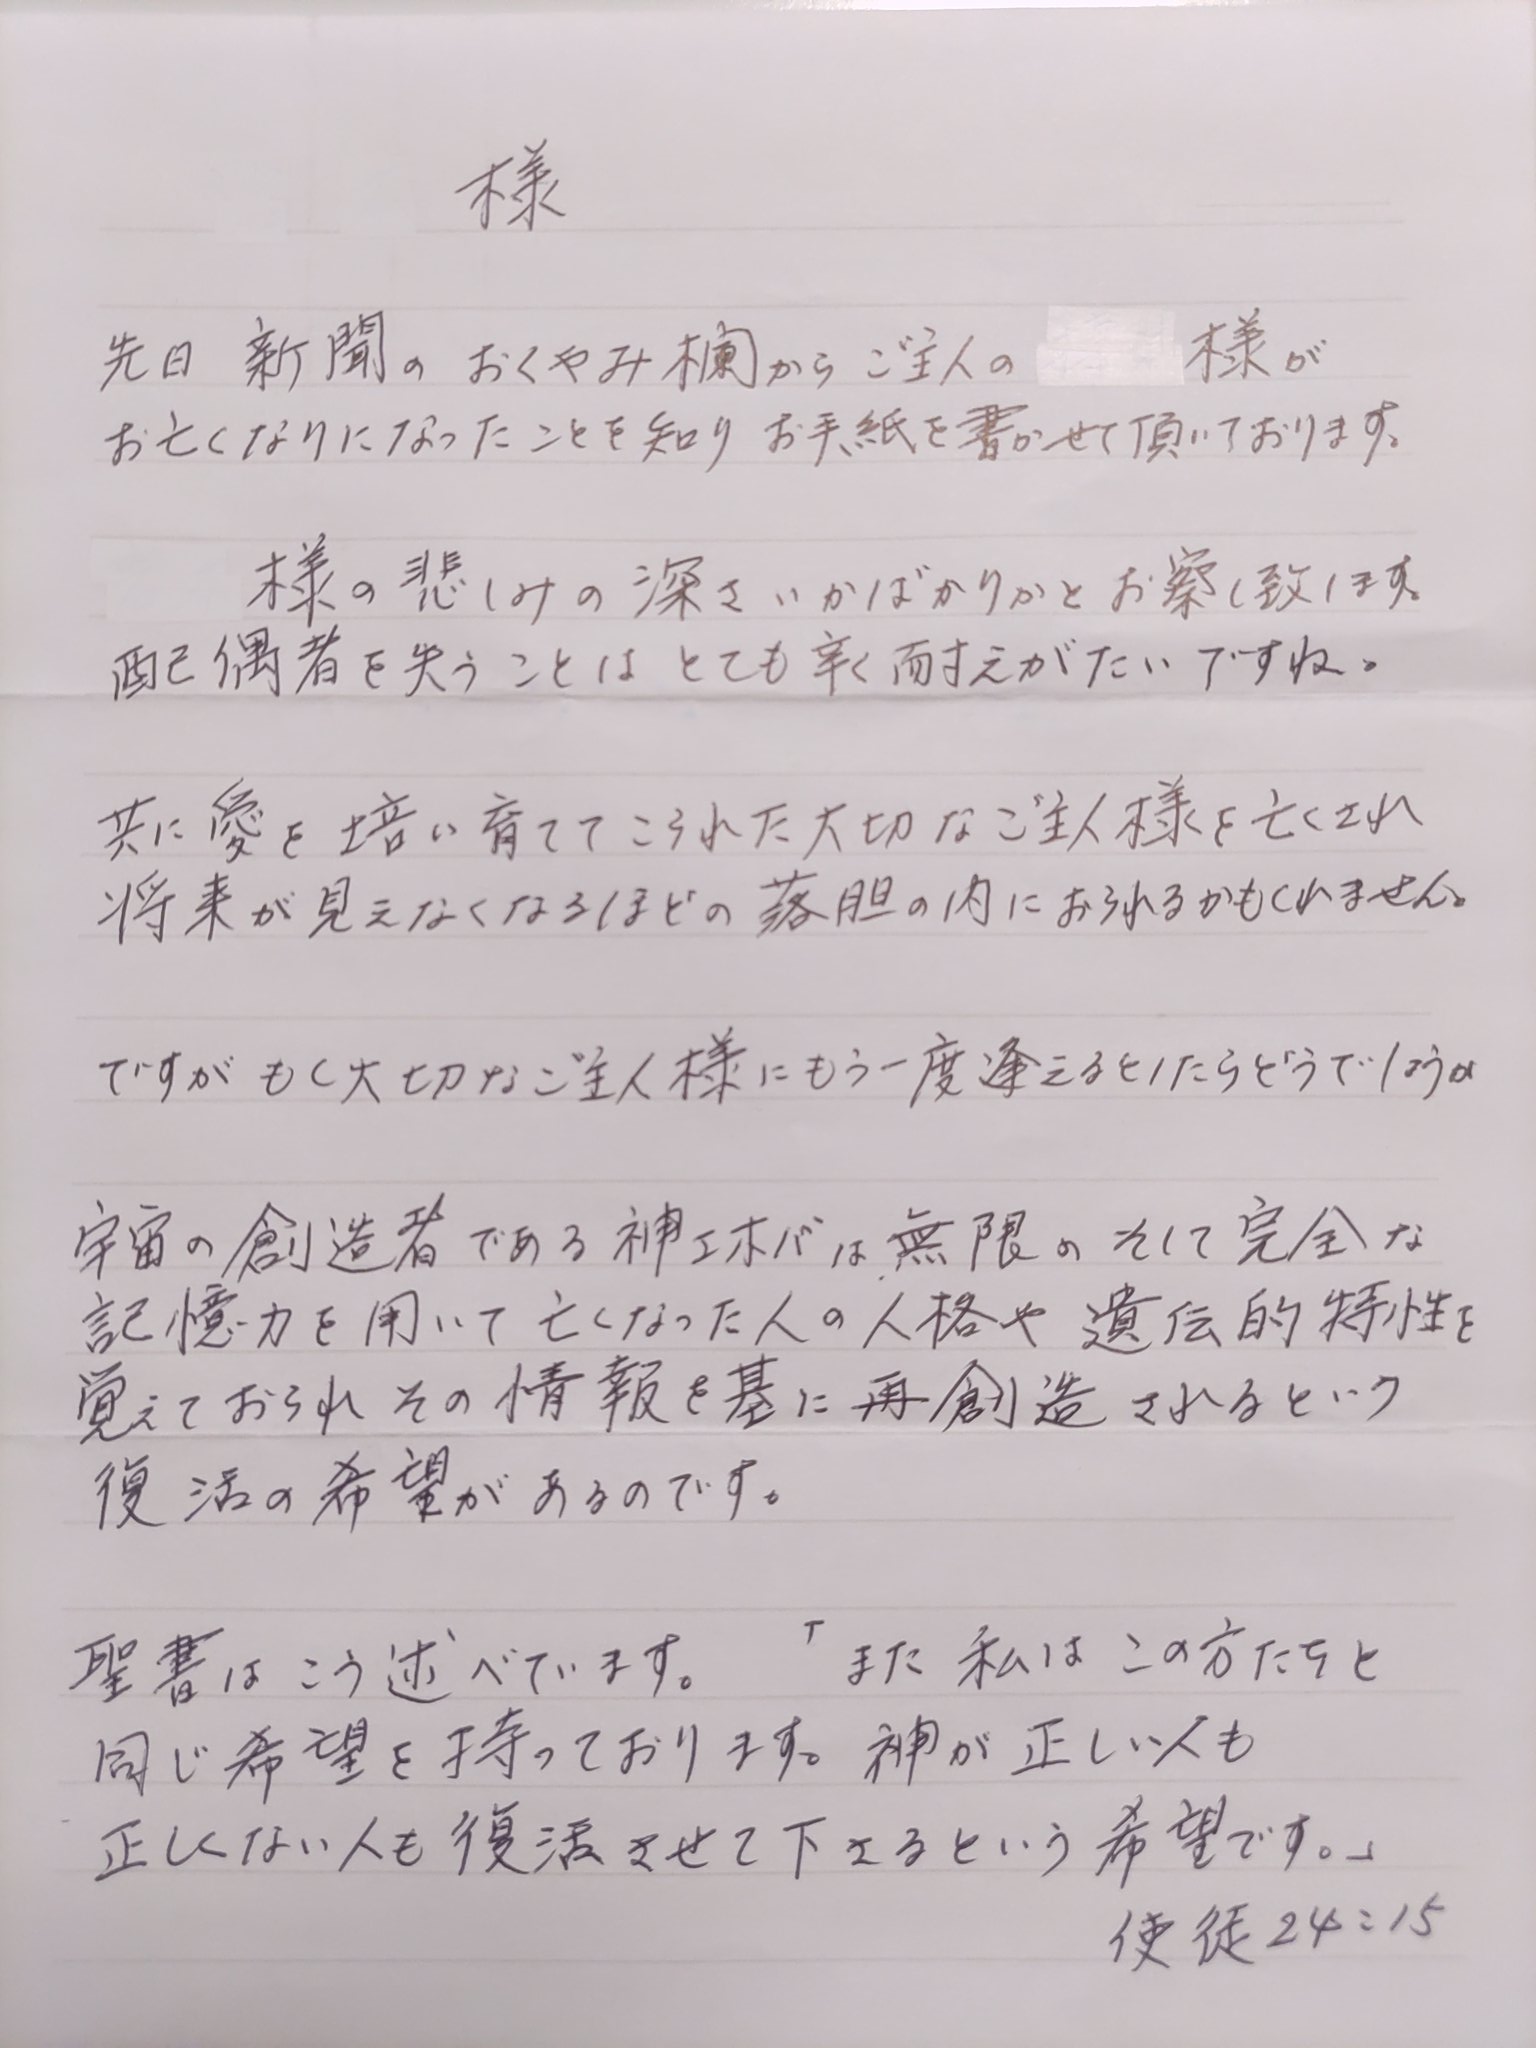 様
先日 新聞の おくやみ欄から ご主人の 様が
お亡くなりになったことを知り お手紙を書かせて頂いております。
様の悲しみの深さいかばかりかとお察し致します。
配偶者を失うことは とても辛く耐えがたいですね。
共に愛を培い育ててこられた大切なご主人様を亡くされ
将来が見えなくなるほどの落胆の内におられるかもしれません。
ですがもし大切なご主人様にもう一度逢えるとしたらどうでしょうか
宇宙の創造者である神エホバは無限の そして完全な
記憶力を用いて亡くなった人の人格や遺伝的特性を
覚えておられ その情報を基に再創造されるという
復活の希望があるのです。
聖書はこう述べています。 「また私はこの方たちと
同じ希望を持っております。神が正しい人も
正しくない人も復活させて下さるという希望です。」
使徒24:15